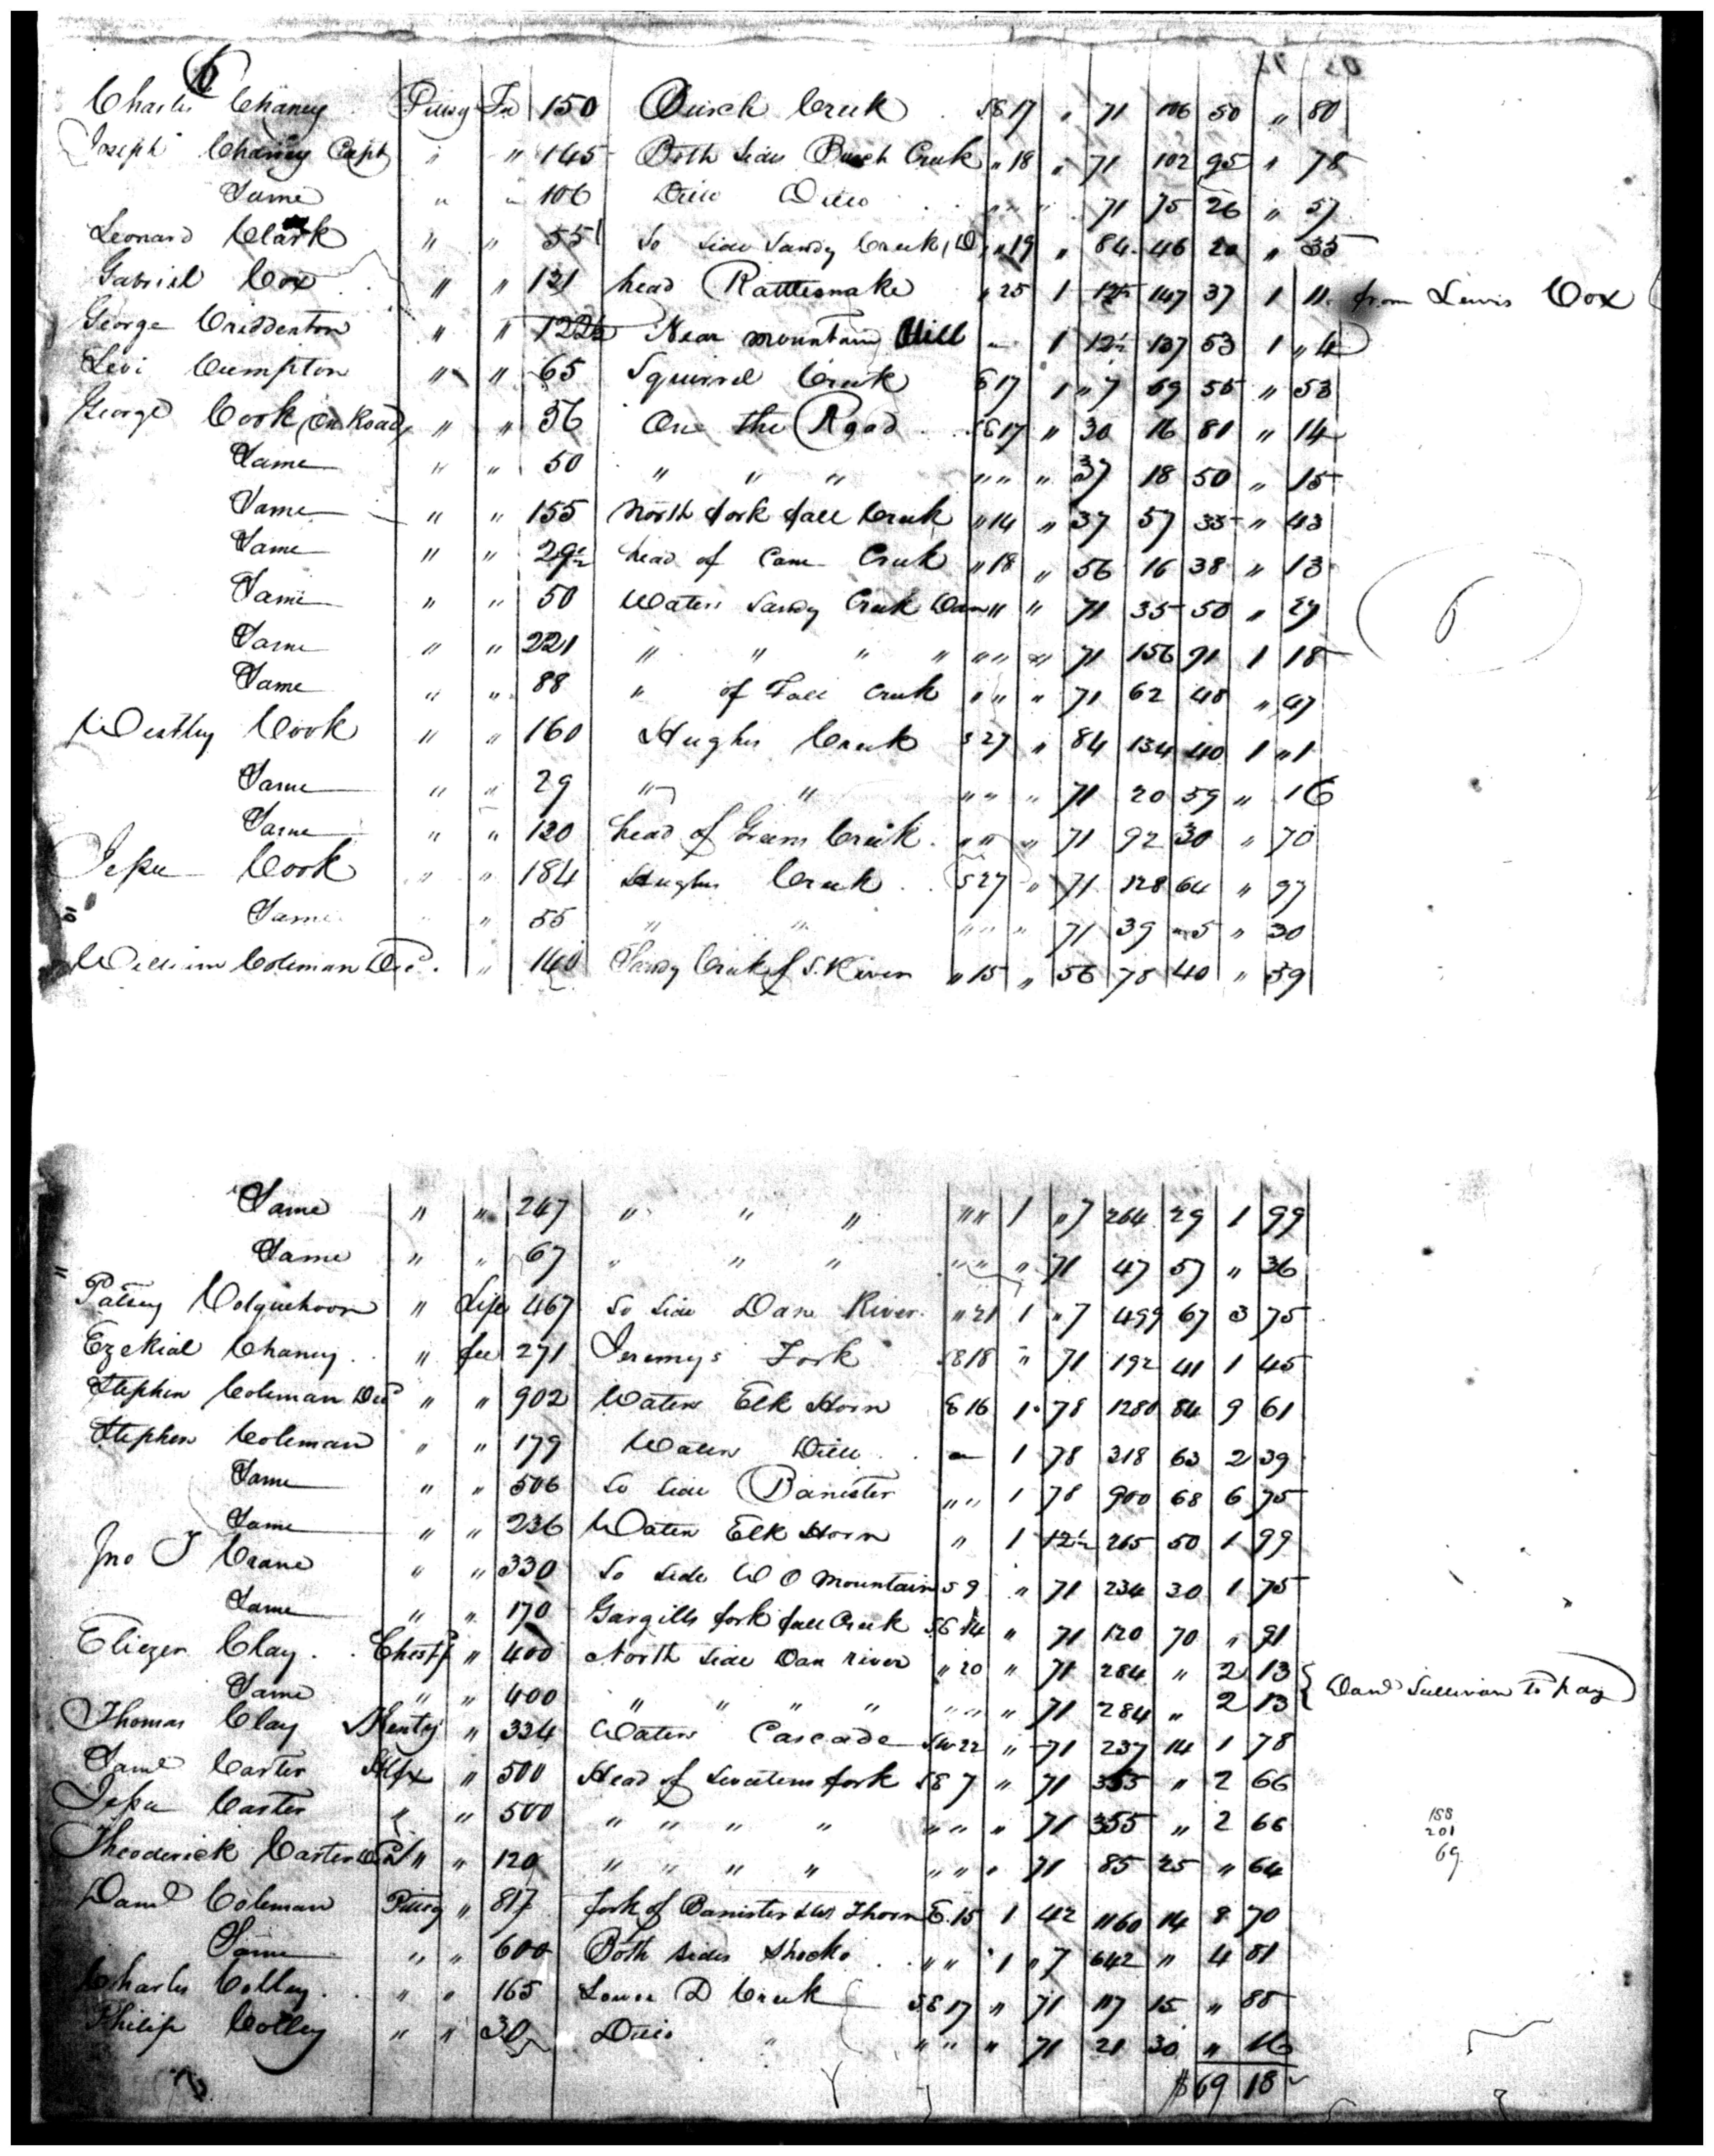 6
Charles Chaney Pittsy Fee 150 Burch Creek SE 17 " 71 106 50 " 80
Joseph Chaney Capt " " 145 Both sides Burch Creek " 18 " 71 102 95 " 78
Same " " 106 Ditto Ditto " " " 71 75 26 " 57
Leonard Clark " " 55 So side Sandy Creek, D " 19 " 84 46 20 " 35
Gabriel Cox " " 131 head Rattlesnake " 25 1 12½ 147 37 1 11 from Lewis Cox
George Criddenton " " 122½ Near mountain Hill " 1 12½ 137 53 1 " 4
Levi Cumpton " " 65 Squirrel Creek E 17 1 " 7 69 55 " 53
George Cook, On Road, " " 56 On the Road SE 17 " 30 16 81 " 14
Same " " 50 " " " " " " 37 18 50 " 15
Same " " 155 North fork fall Creek " 14 " 37 57 35 " 43
Same " " 29½ head of Cane Creek " 18 " 56 16 38 " 13
Same " " 50 Waters Sandy Creek Dan " " " 71 35 50 " 27
Same " " 221 " " " " " " " 71 156 91 1 18
Same " " 88 " of Fall Creek " " " 71 62 48 " 47
Westley Cook " " 160 Hughes Creek S 27 " 84 134 40 1 " 1
Same " " 29 " " " " " 71 20 59 " 16
Same " " 130 head of Greens Creek " " " 71 92 30 " 70
Jesse Cook " " 184 Hughes Creek S 27 " 71 128 64 " 97
Same " " 55 " " " " " 71 39 " 5 " 30
William Coleman Decd. " 140 Sandy Creek of S. River " 15 " 56 78 40 " 59
6
Same " " 247 " " " " " 1 " 7 264 29 1 99
Same " " 67 " " " " " " 71 47 57 " 36
Patsey Colquehoon " Life 467 So side Dan River " 21 1 " 7 499 67 3 75
Ezekial Chaney " fee 271 Jeremys Fork SE 18 " 71 192 41 1 45
Stephen Coleman Decd " " 902 Waters Elk Horn E 16 1 78 1280 84 9 61
Stephen Coleman " " 179 Waters Ditto " 1 78 318 63 2 39
Same " " 506 So side Banister " " 1 78 900 68 6 75
Same " " 236 Waters Elk Horn " 1 12½ 265 50 1 99
Jno T Crane " " 330 So side W O Mountain S 9 " 71 234 30 1 75
Same " " 170 Gargills fork fall Creek SE 14 " 71 120 70 " 91
Eliezer Clay Chestf " 400 North side Dan river " 20 " 71 284 " 2 13
Same " " 400 " " " " " " " 71 284 " 2 13 Danl Sullivan to pay
Thomas Clay Kenty " 334 Waters Cascade SW 22 " 71 237 14 1 78
Saml Carter Hfx " 500 Head of fork SE 7 " 71 355 " 2 66
Jesse Carter " " 500 " " " " " " " 71 355 " 2 66
Theoderick Carter Decd " " 120 " " " " " " " 71 85 25 " 64
Danl Coleman Pittsy " 817 fork of Banister & W Thorn E 15 1 42 1160 14 8 70
Same " " 600 Both sides Shocko " " 1 " 7 642 " 4 81
Charles Colley " " 165 Lower D Creek SE 17 " 71 117 15 " 88
Philip Colley " " 30 Ditto " " " " 71 21 30 " 16
$69 18
188
201
69